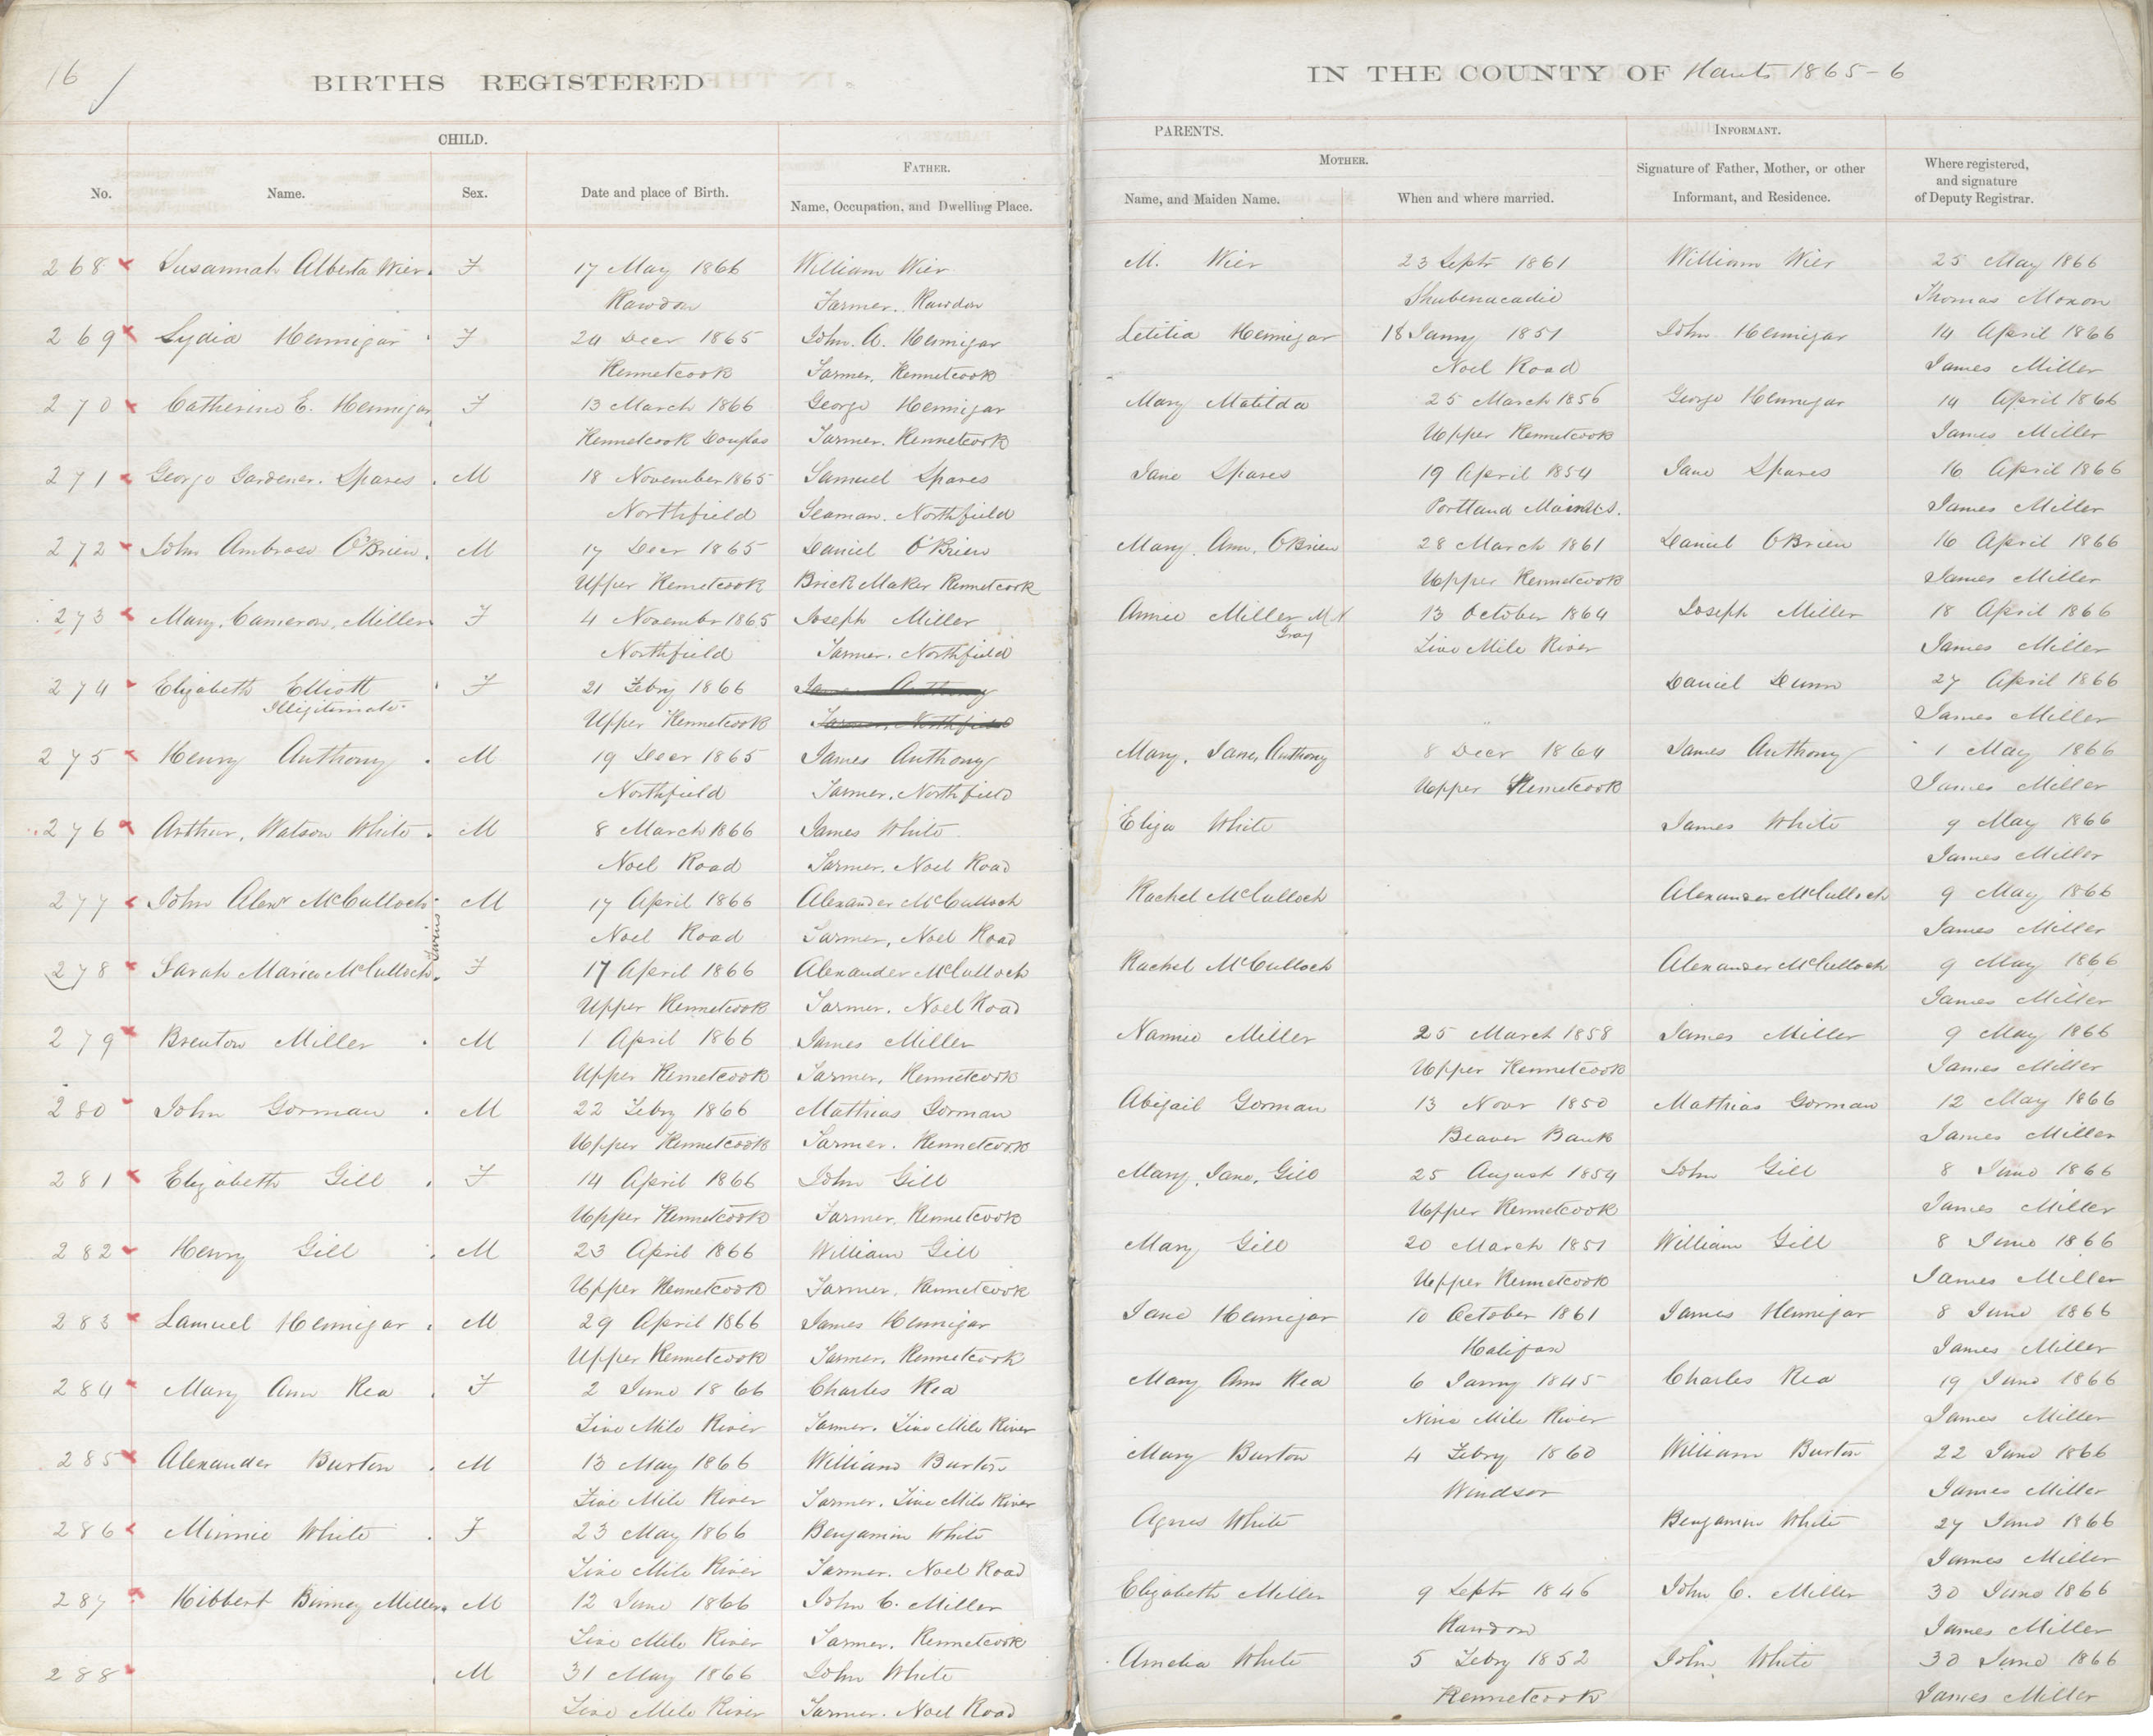 16
BIRTHS REGISTERED
IN THE COUNTY OF Hants 1865-6
CHILD.
PARENTS.
INFORMANT.
FATHER.
MOTHER.
No. Name. Sex. Date and place of Birth. Name, Occupation, and Dwelling Place. Name, and Maiden Name. When and where married. Signature of Father, Mother, or other Informant, and Residence. Where registered, and signature of Deputy Registrar.
268 Susannah Alberta Wier F 17 May 1866 William Wier M. Wier 23 Septr 1861 William Wier 25 May 1866
Rawdon Farmer. Rawdon Shubenacadie Thomas Moxon
269 Lydia Hennigar F 24 Decr 1865 John. A. Hennigar Letitia Hennigar 18 Janny 1851 John Hennigar 14 April 1866
Kennetcook Farmer, Kennetcook Noel Road James Miller
270 Catherine E. Hennigar F 13 March 1866 George Hennigar Mary Matilda 25 March 1856 George Hennigar 14 April 1866
Kennetcook Douglas Farmer. Kennetcook Upper Kennetcook James Miller
271 George Gardener. Spares M 18 November 1865 Samuel Spares Jane Spares 19 April 1854 Jane Spares 16 April 1866
Northfield Seaman. Northfield Portland Maine U.S. James Miller
272 John Ambrose O'Brien. M 17 Decr 1865 Daniel O'Brien Mary. Ann. O'Brien 28 March 1861 Daniel O'Brien 16 April 1866
Upper Kennetcook Brick Maker Kennetcook Upper Kennetcook James Miller
273 Mary. Cameron. Miller F 4 Novembr 1865 Joseph Miller Annie Miller M N 13 October 1864 Joseph Miller 18 April 1866
Gray
Northfield Farmer. Northfield Five Mile River James Miller
274 Elizabeth Elliott F 21 Febry 1866 James Anthony Daniel Dunn 27 April 1866
Illigitimate
Upper Kennetcook Farmer, Northfield James Miller
275 Henry Anthony M 19 Decr 1865 James Anthony Mary. Jane, Anthony 8 Decr 1864 James Anthony 1 May 1866
Northfield Farmer. Northfield Upper Kennetcook James Miller
276 Arthur, Watson White M 8 March 1866 James White Eliza White James White 9 May 1866
Noel Road Farmer. Noel Road James Miller
277 John Alexr McCulloch M 17 April 1866 Alexander McCulloch Rachel McCulloch Alexander McCulloch 9 May 1866
Twins
Noel Road Farmer, Noel Road James Miller
278 Sarah Maria McCulloch. F 17 April 1866 Alexander McCulloch Rachel McCulloch Alexander McCulloch 9 May 1866
Upper Kennetcook Farmer. Noel Road James Miller
279 Brenton Miller M 1 April 1866 James Miller Nannie Miller 25 March 1858 James Miller 9 May 1866
Upper Kennetcook Farmer, Kennetcook Upper Kennetcook James Miller
280 John Gorman M 22 Febry 1866 Matthias Gorman Abigail Gorman 13 Novr 1850 Mathias Gorman 12 May 1866
Upper Kennetcook Farmer. Kennetcook Beaver Bank James Miller
281 Elizabeth Gill F 14 April 1866 John Gill Mary, Jane, Gill 25 August 1854 John Gill 8 June 1866
Upper Kennetcook Farmer, Kennetcook Upper Kennetcook James Miller
282 Henry Gill M 23 April 1866 William Gill Mary Gill 20 March 1851 William Gill 8 June 1866
Upper Kennetcook Farmer, Kennetcook Upper Kennetcook James Miller
283 Samuel Hennigar M 29 April 1866 James Hennigar Jane Hennigar 10 October 1861 James Hennigar 8 June 1866
Upper Kennetcook Farmer, Kennetcook Halifax James Miller
284 Mary Ann Rea F 2 June 1866 Charles Rea Mary Ann Rea 6 Janny 1845 Charles Rea 19 June 1866
Five Mile River Farmer. Five Mile River Nine Mile River James Miller
285 Alexander Burton M 13 May 1866 William Burton Mary Burton 4 Febry 1860 William Burton 22 June 1866
Five Mile River Farmer. Five Mile River Windsor James Miller
286 Minnie White F 23 May 1866 Benjamin White Agnes White Benjamin White 27 June 1866
Five Mile River Farmer. Noel Road James Miller
287 Hibbert Binney Miller M 12 June 1866 John C. Miller Elizabeth Miller 9 Septr 1846 John C. Miller 30 June 1866
Five Mile River Farmer. Kennetcook Rawdon James Miller
288 M 31 May 1866 John White Amelia White 5 Febry 1852 John White 30 June 1866
Five Mile River Farmer. Noel Road Kennetcook James Miller